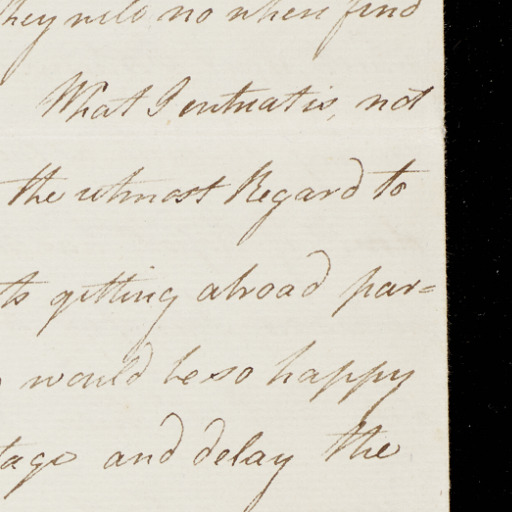 they will no where find
What I entreat is, not
the utmost Regard to
its getting abroad par=
would be so happy
tage and delay the